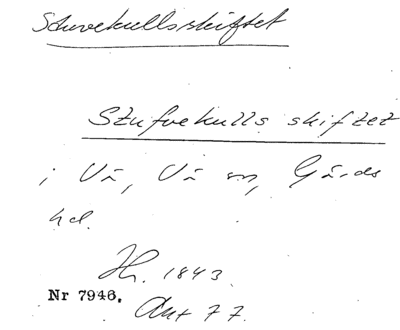 Stuvekullsskiftet
Stufvekulls skiftet
i Vä, Vä sn, Gärds
hd.
Hr. 1843.
Nr 7946.
Akt 77.